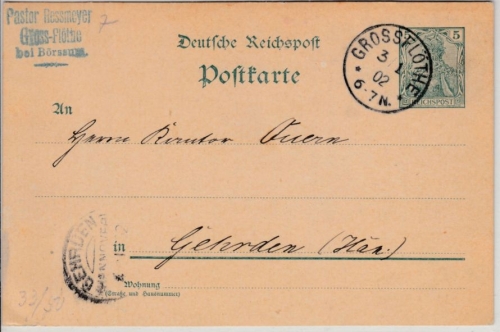 Pastor Rossmeyer
Gross-Flöthe
bei Börssum.
7
Deutsche Reichspost
Postkarte
GROSS FLÖTHE
3 1
02
6-7N.
5
REICHSPOST
An
Herrn Kantor
GEHRDEN
in Gehrden (Han.)
Wohnung
(Straße und Hausnummer)
33/50